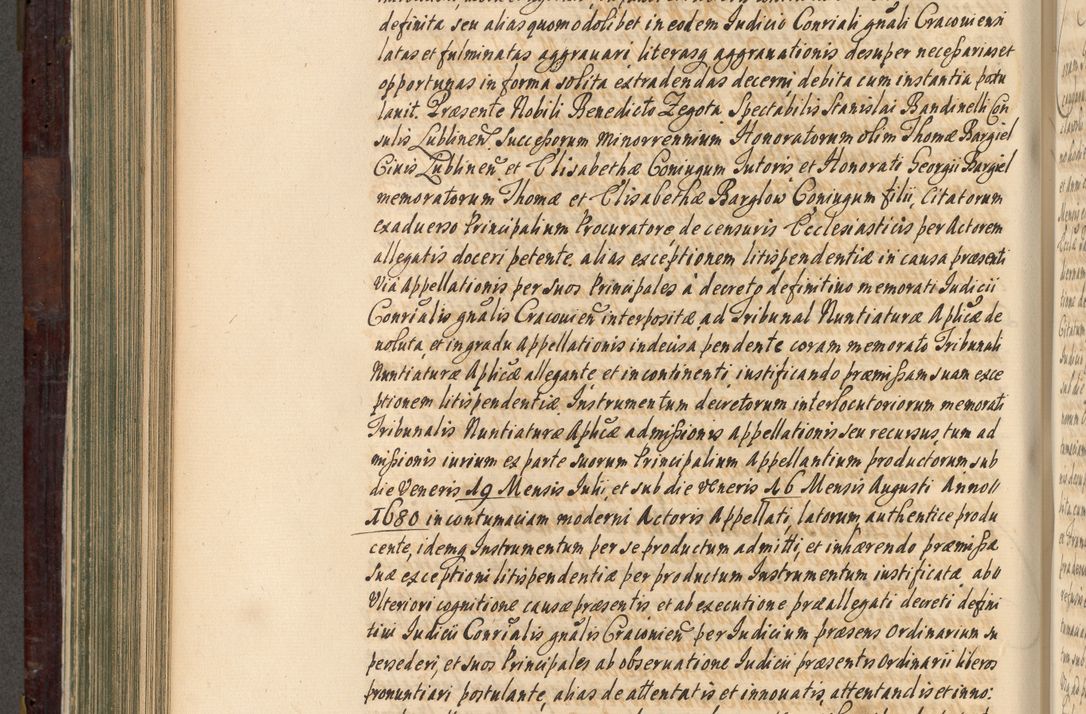 definita seu alias quomodolibet in eodem Iudicio Conriali gnali Cracoviensi
latas et fulminatas aggravari literasq aggravationis desuper necessarias et
opportunas in forma solita extradendas decerni debita cum instantia postu
lavit. Præsente Nobili Benedicto Zegota Spectabilis Stanislai Bandinelli Con
sulis Lublinen Successorum Minorrennium Honoratorum olim Thomæ Bargiel
Civis Lublinen et Elisabethæ Coniugum Tutoris et Honorati Georgii Bargiel
memoratorum Thomæ et Elisabethæ Barglow Coniugum filii, Citatorum
exadverso Principalium Procuratore de censuris Ecclesiasticis per Actorem
allegatis doceri petente. alias exceptionem litispendentiæ in causa præsenti
Via Appellationis per suos Principales à decreto definitivo memorati Iudicii
Conrialis gnalis Cracovien interpositæ, ad Tribunal Nuntiaturæ Aplicæ de
voluta, et in gradu Appellationis indecisa pendente coram memorato Tribunali
Nuntiaturæ Aplicæ allegante et in continenti iustificando præmissam suam exce
ptionem litispendentiæ Instrumentum decretorum interlocutoriorum memorati
Tribunalis Nuntiaturæ Aplicæ admissionis Appellationis seu recursus, tum ad
missionis iurium ex parte suorum Principalium Appellantium productorum sub
die Veneris 19 Mensis Iulii, et sub die Veneris 16 Mensis Augusti Anno
1680 in contumaciam moderni Actoris Appellati, latorum authentice produ
cente, idemq Instrumentum per se productum admitti, et inhærendo præmissa
suæ exceptioni litispendentiæ per productum Instrumentum iustificatæ ab
Ulteriori cognitione causæ præsentis et ab executione præallegati decreti defini
tivi Iudicii Conrialis gnalis Cracovien per Iudicium præsens Ordinarium su
persederi, et suos Principales ab observatione Iudicii præsentis Ordinarii liberos
pronuntiari postulante, alias de attentatis et innovatis, attentandis et inno: